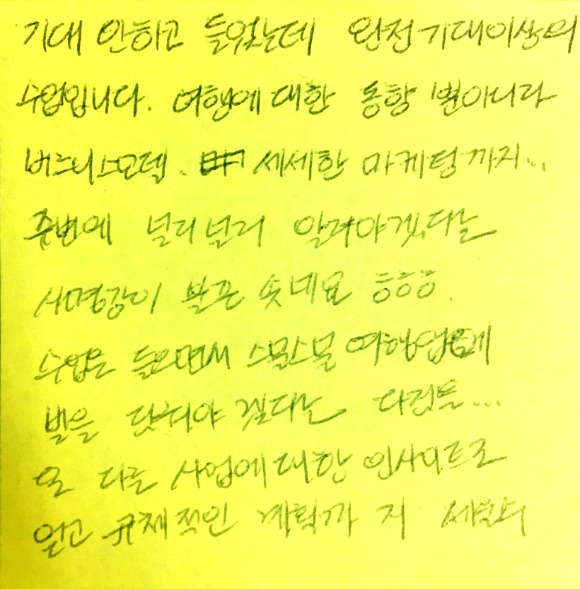 기대 안하고 들었는데 완전 기대이상의
수업입니다. 여행에 대한 동향 뿐아니라
비즈니스모델. 세세한 마케팅까지...
주변에 널리널리 알려야겠다는
사명감이 불끈 솟네요 ㅎㅎㅎ.
수업을 들으면서 스물스물 여행업에
발을 담궈야 겠다는 다짐을...
또 다른 사업에대한 인사이트도
얻고 구체적인 계획까지